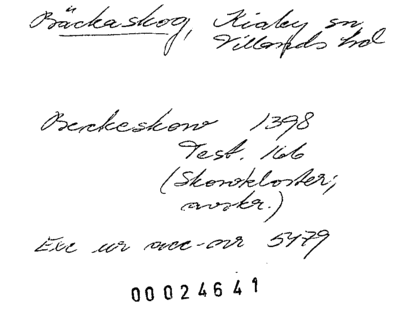 Bäckaskog, Kiaby sn
Villands hd
Beckeskow 1398
Test. 166
(Skowkloster;
avskr.)
Exc ur acc-nr 5479
00024641